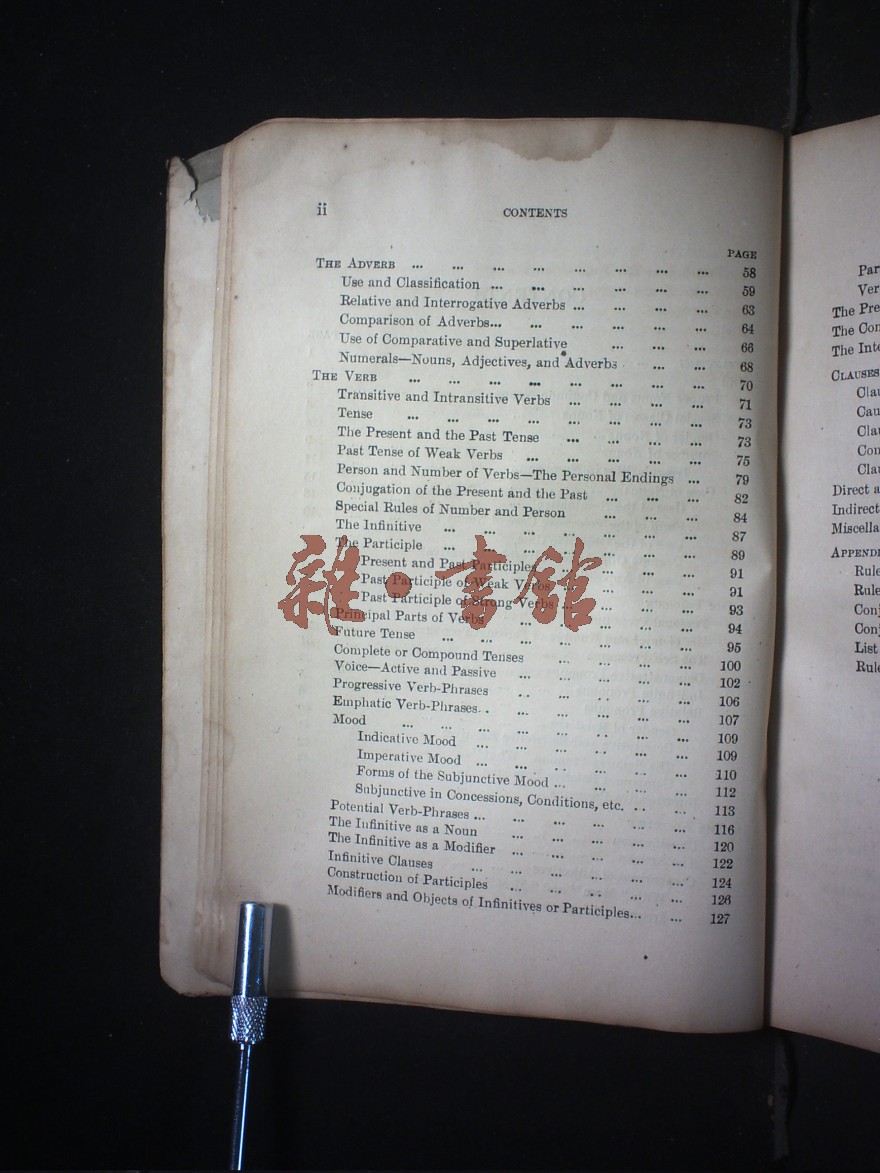 ii CONTENTS
PAGE
THE ADVERB ... ... ... ... ... ... ... ... 58
Use and Classification ... ... ... ... ... ... 59
Relative and Interrogative Adverbs ... ... ... ... 63
Comparison of Adverbs... ... ... ... ... ... 64
Use of Comparative and Superlative ... ... ... 66
Numerals—Nouns, Adjectives, and Adverbs ... ... 68
THE VERB ... ... ... ... ... ... ... ... 70
Transitive and Intransitive Verbs ... ... ... ... 71
Tense ... ... ... ... ... ... ... ... 73
The Present and the Past Tense ... ... ... ... 73
Past Tense of Weak Verbs ... ... ... ... ... 75
Person and Number of Verbs—The Personal Endings ... 79
Conjugation of the Present and the Past ... ... ... 82
Special Rules of Number and Person ... ... ... 84
The Infinitive ... ... ... ... ... ... ... 87
The Participle ... ... ... ... ... ... ... 89
Present and Past Participles ... ... ... 91
Past Participle of Weak Verbs ... ... ... ... 91
Past Participle of Strong Verbs ... ... ... ... 93
Principal Parts of Verbs ... ... ... ... ... 94
Future Tense ... ... ... ... ... ... ... 95
Complete or Compound Tenses ... ... ... ... 100
Voice—Active and Passive ... ... ... ... ... 102
Progressive Verb-Phrases ... ... ... ... ... 106
Emphatic Verb-Phrases... ... ... ... ... ... 107
Mood ... ... ... ... ... ... ... ... 109
Indicative Mood ... ... ... ... ... ... 109
Imperative Mood ... ... ... ... ... ... 110
Forms of the Subjunctive Mood ... ... ... ... 112
Subjunctive in Concessions, Conditions, etc. ... ... 113
Potential Verb-Phrases ... ... ... ... ... ... 116
The Infinitive as a Noun ... ... ... ... ... 120
The Infinitive as a Modifier ... ... ... ... ... 122
Infinitive Clauses ... ... ... ... ... ... 124
Construction of Participles ... ... ... ... ... 126
Modifiers and Objects of Infinitives or Participles... ... 127
雜·書館
Par
Ver
The Pre
The Con
The Inte
CLAUSES
Clau
Cau
Clau
Con
Clau
Direct a
Indirect
Miscella
APPENDI
Rule
Rule
Conj
Conj
List
Rule